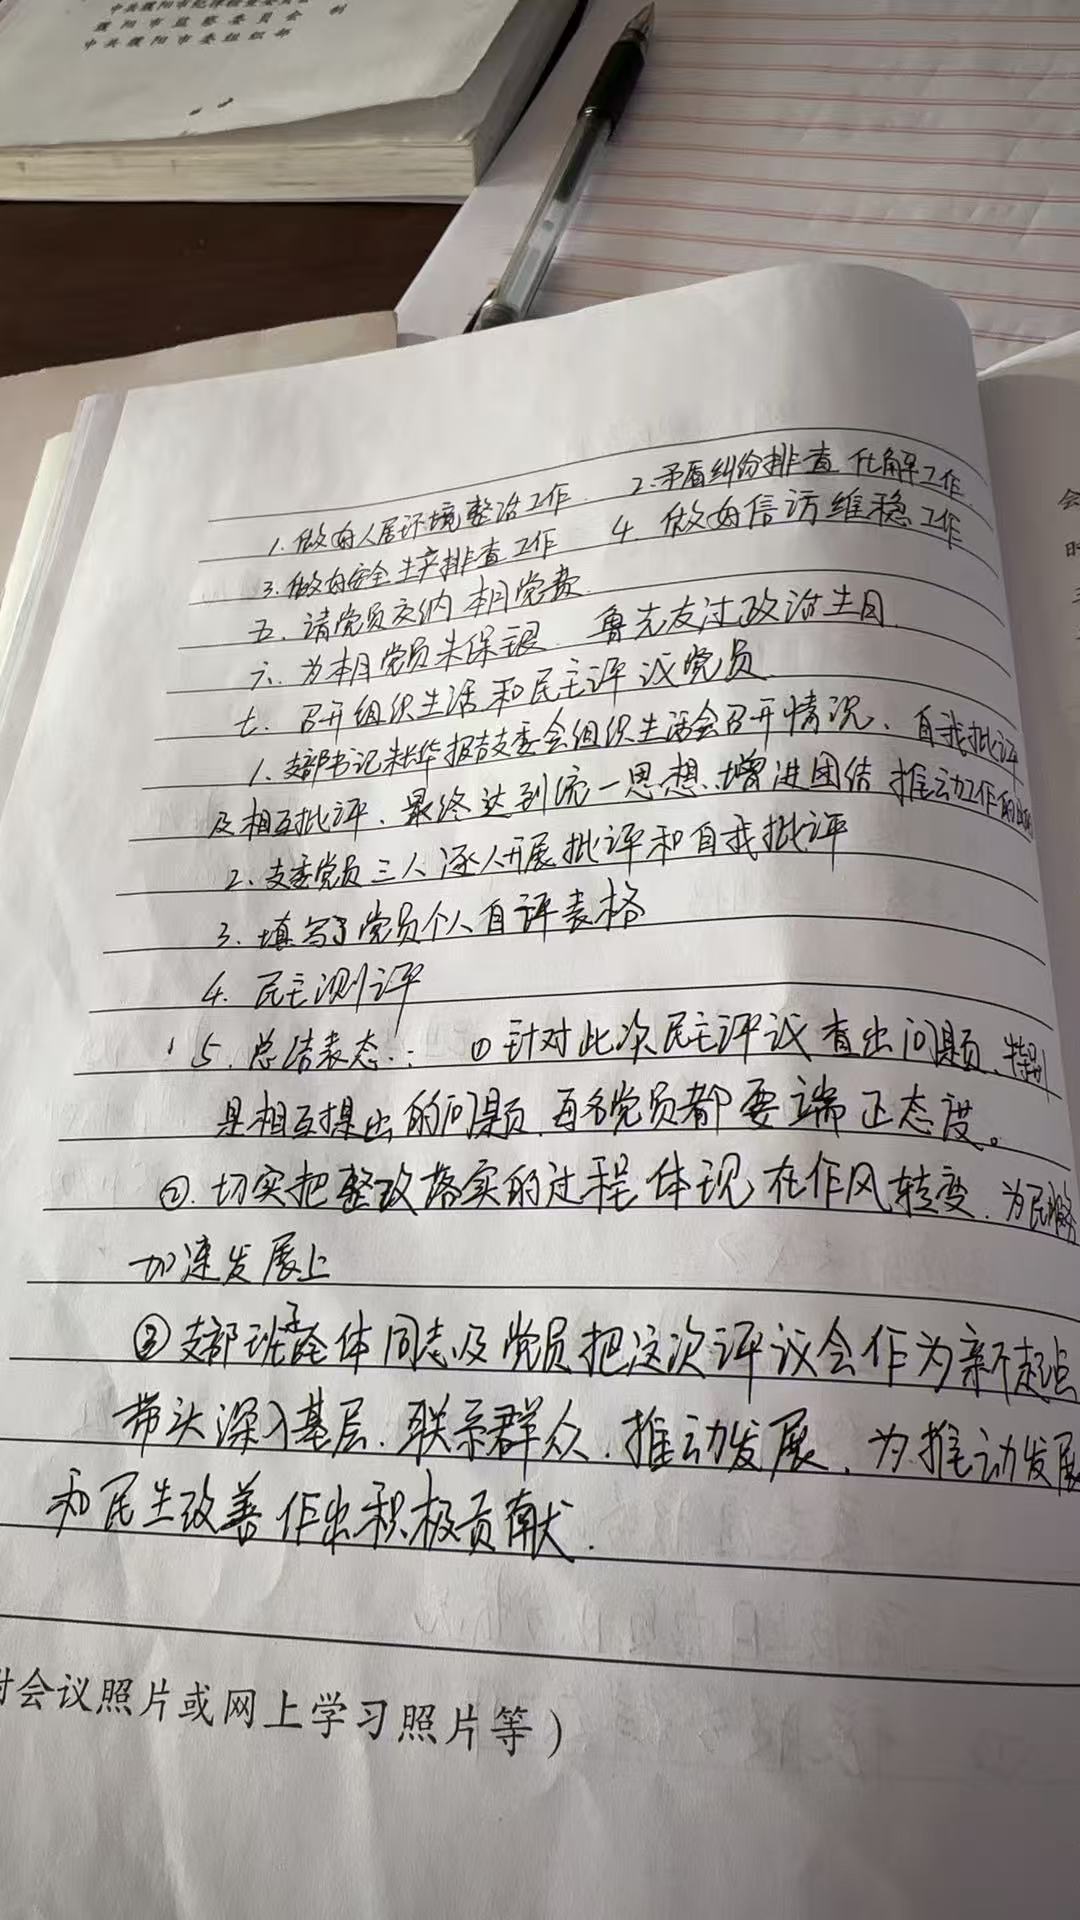 中共濮阳市纪律检查委员会
濮阳市监察委员会 制
中共濮阳市委组织部
1. 做好人居环境整治工作. 2. 矛盾纠纷排查化解工作.
3. 做好安全生产排查工作 4. 做好信访维稳工作
五. 请党员交纳本月党费.
六. 为本月党员朱保银. 鲁先友过政治生日.
七. 召开组织生活和民主评议党员
1. 支部书记 报告支委会组织生活会召开情况、自我批评
及相互批评、最终达到统一思想、增进团结 推动工作的
2. 支委党员三人逐人开展批评和自我批评
3. 填写了党员个人自评表格
4. 民主测评
5. 总结表态: ①针对此次民主评议查出问题、特别
是相互提出的问题. 每名党员都要端正态度。
②. 切实把整改落实的过程体现在作风转变. 为民服务
加速发展上
③支部班子全体同志及党员把这次评议会作为新起点
带头深入基层. 联系群众. 推动发展. 为推动发展
和民生改善作出积极贡献.
对会议照片或网上学习照片等）
会
时